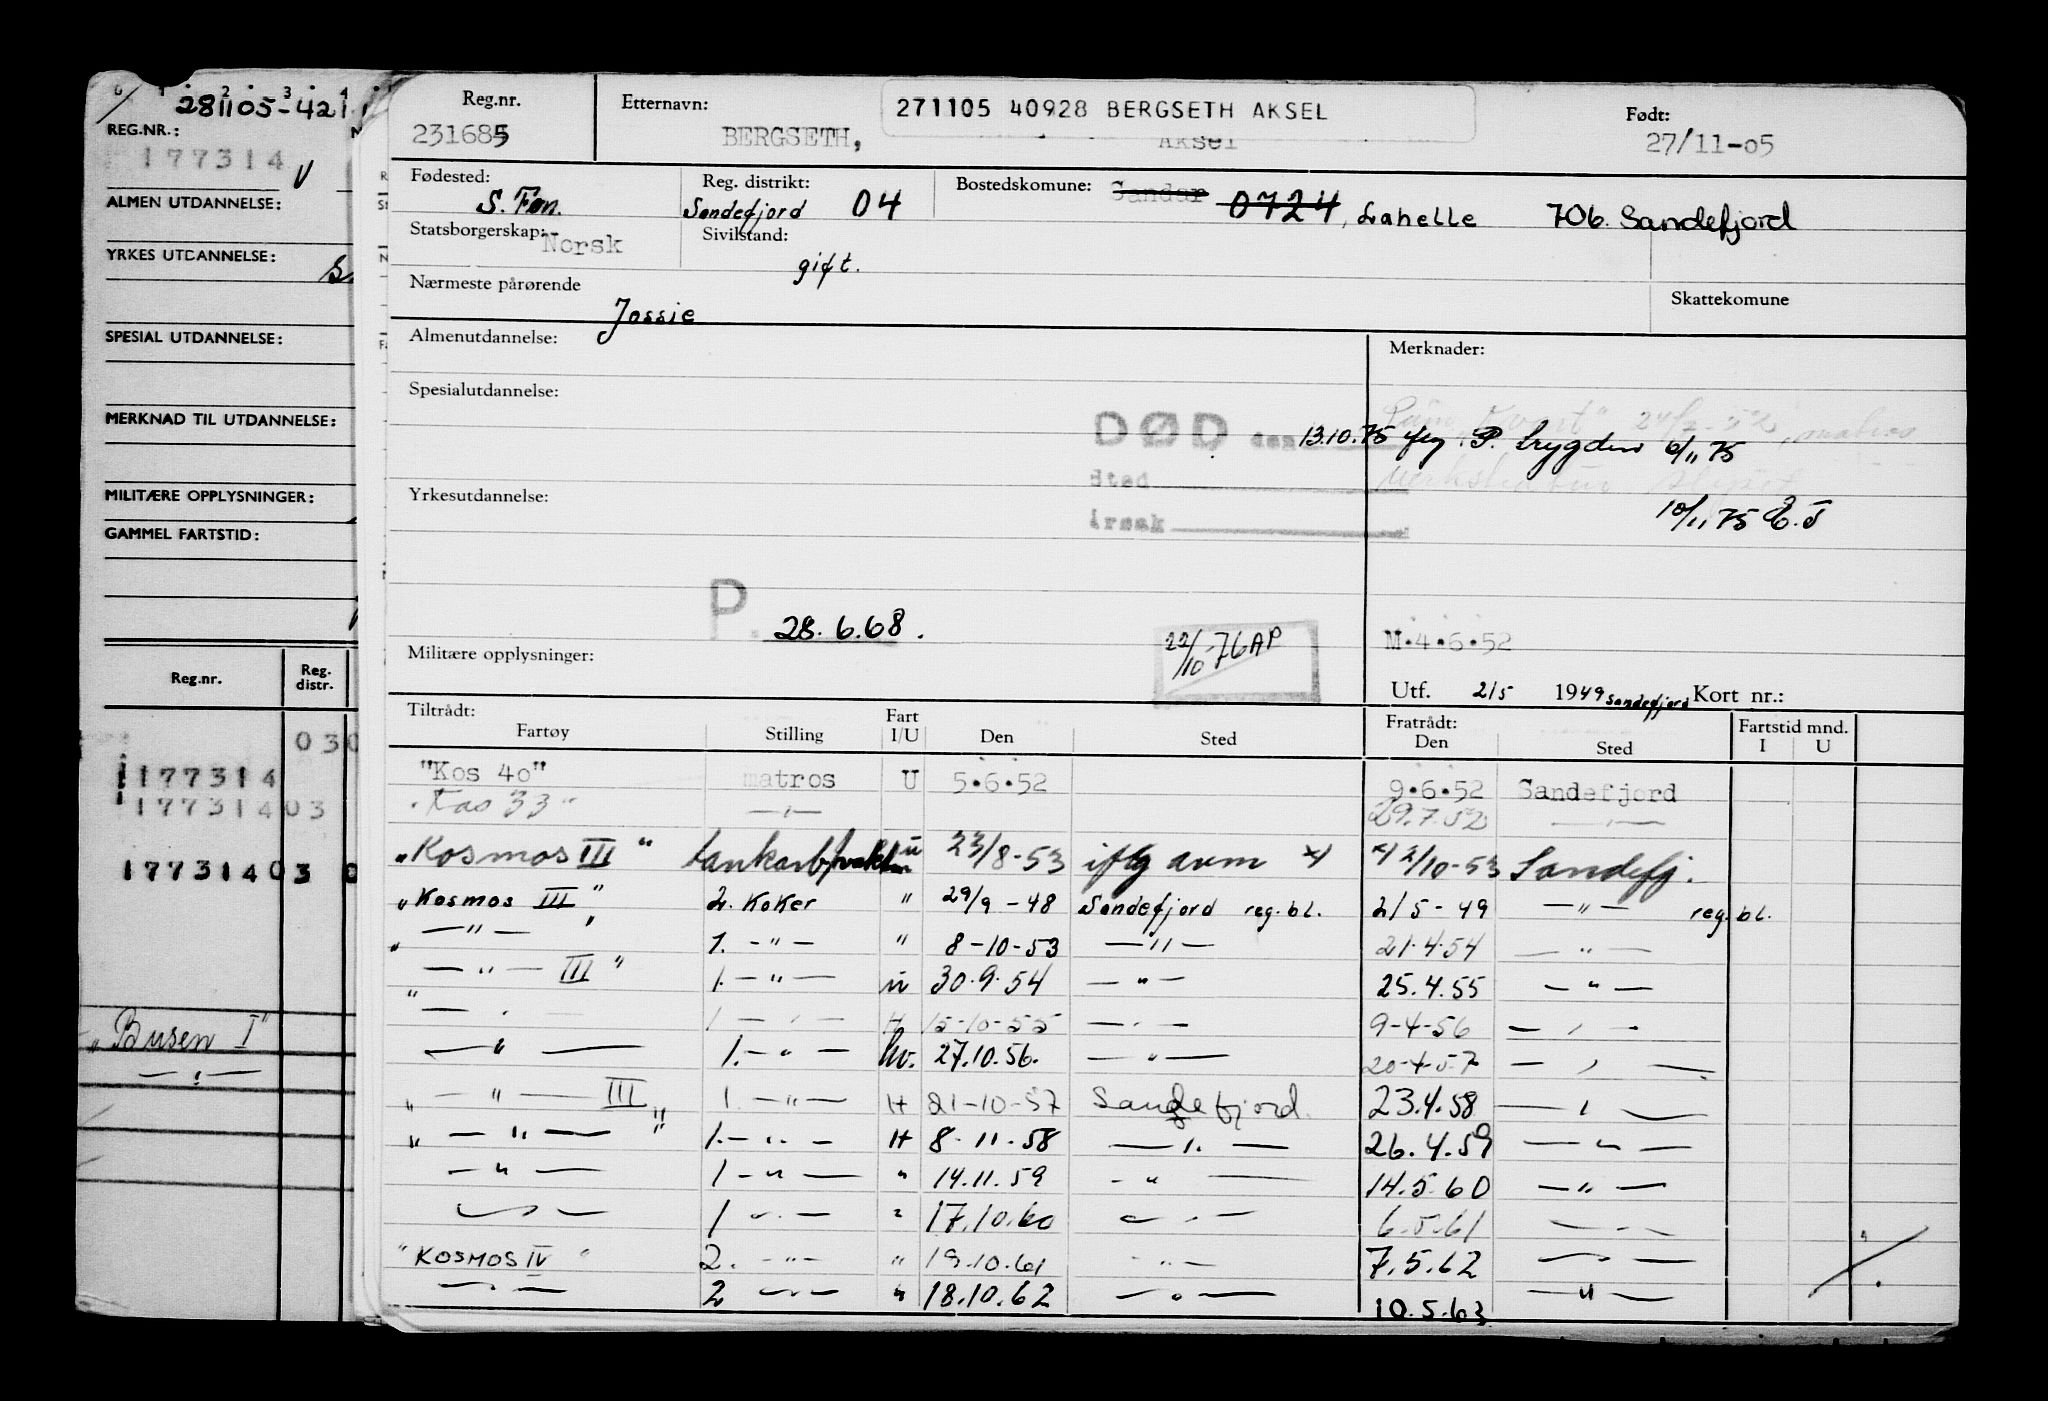 0 1 2 3 4
281105-421
REG.NR.:
177314 V
ALMEN UTDANNELSE:
YRKES UTDANNELSE:
SPESIAL UTDANNELSE:
MERKNAD TIL UTDANNELSE:
MILITÆRE OPPLYSNINGER:
GAMMEL FARTSTID:
Reg.nr. Reg. distr.
030
177314
177314 03
177314 03 0
"Busen I"
— " —
Reg.nr. Etternavn: 271105 40928 BERGSETH AKSEL Født:
231685 BERGSETH, Aksel 27/11-05
Fødested: Reg. distrikt: Bostedskomune: Sandar 0724, Lahelle 706. Sandefjord
S. Fon. Sandefjord 04
Statsborgerskap: Norsk Sivilstand: gift.
Nærmeste pårørende Skattekomune
Jossie
Almenutdannelse: Merknader:
Spesialutdannelse:
DØD den 13.10.75 P. trygden 6/11 75
Sted
Årsak
Yrkesutdannelse:
10/11 75 E.T
P. 28.6.68.
22/10-76 AP
M.4.6.52
Militære opplysninger:
Utf. 2/5 1949 Sandefjord Kort nr.:
Tiltrådt: Fart Fratrådt: Fartstid mnd.
Fartøy Stilling I/U Den Sted Den Sted I U
"Kos 40" matros U 5.6.52 9.6.52 Sandefjord
"Kos 33" — " — 29.7.52 — " —
"Kosmos III" u 23/8-53 iflg avm x) x) 2/10-53 Sandefj.
"Kosmos III" 2. Koker " 29/9-48 Sandefjord reg.bl. 2/5-49 — " — reg.bl.
" — " — " 1. — " — " 8-10-53 — " — 21.4.54 — " —
— " — III" 1. — " — u 30.9.54 — " — 25.4.55 — " —
" — " — 1 — " — H 15-10-55 — " — 9-4-56 — " —
— " — 1. — " — hv. 27.10.56. — " — 20-4-57 — " —
" — " — III" 1. — " — H 21-10-57 Sandefjord. 23.4.58 — " —
" — " — " 1. — " — H 8.11.58 — " — 26.4.59 — " —
— " — 1 — " — " 14.11.59 — " — 14.5.60 — " —
— " — 1 — " — " 17.10.60 — " — 6.5.61 — " —
"KOSMOS IV" 2. — " — " 19.10.61 — " — 7.5.62 — " —
— " — 2 — " — " 18.10.62 — " — 10.5.63 — " —